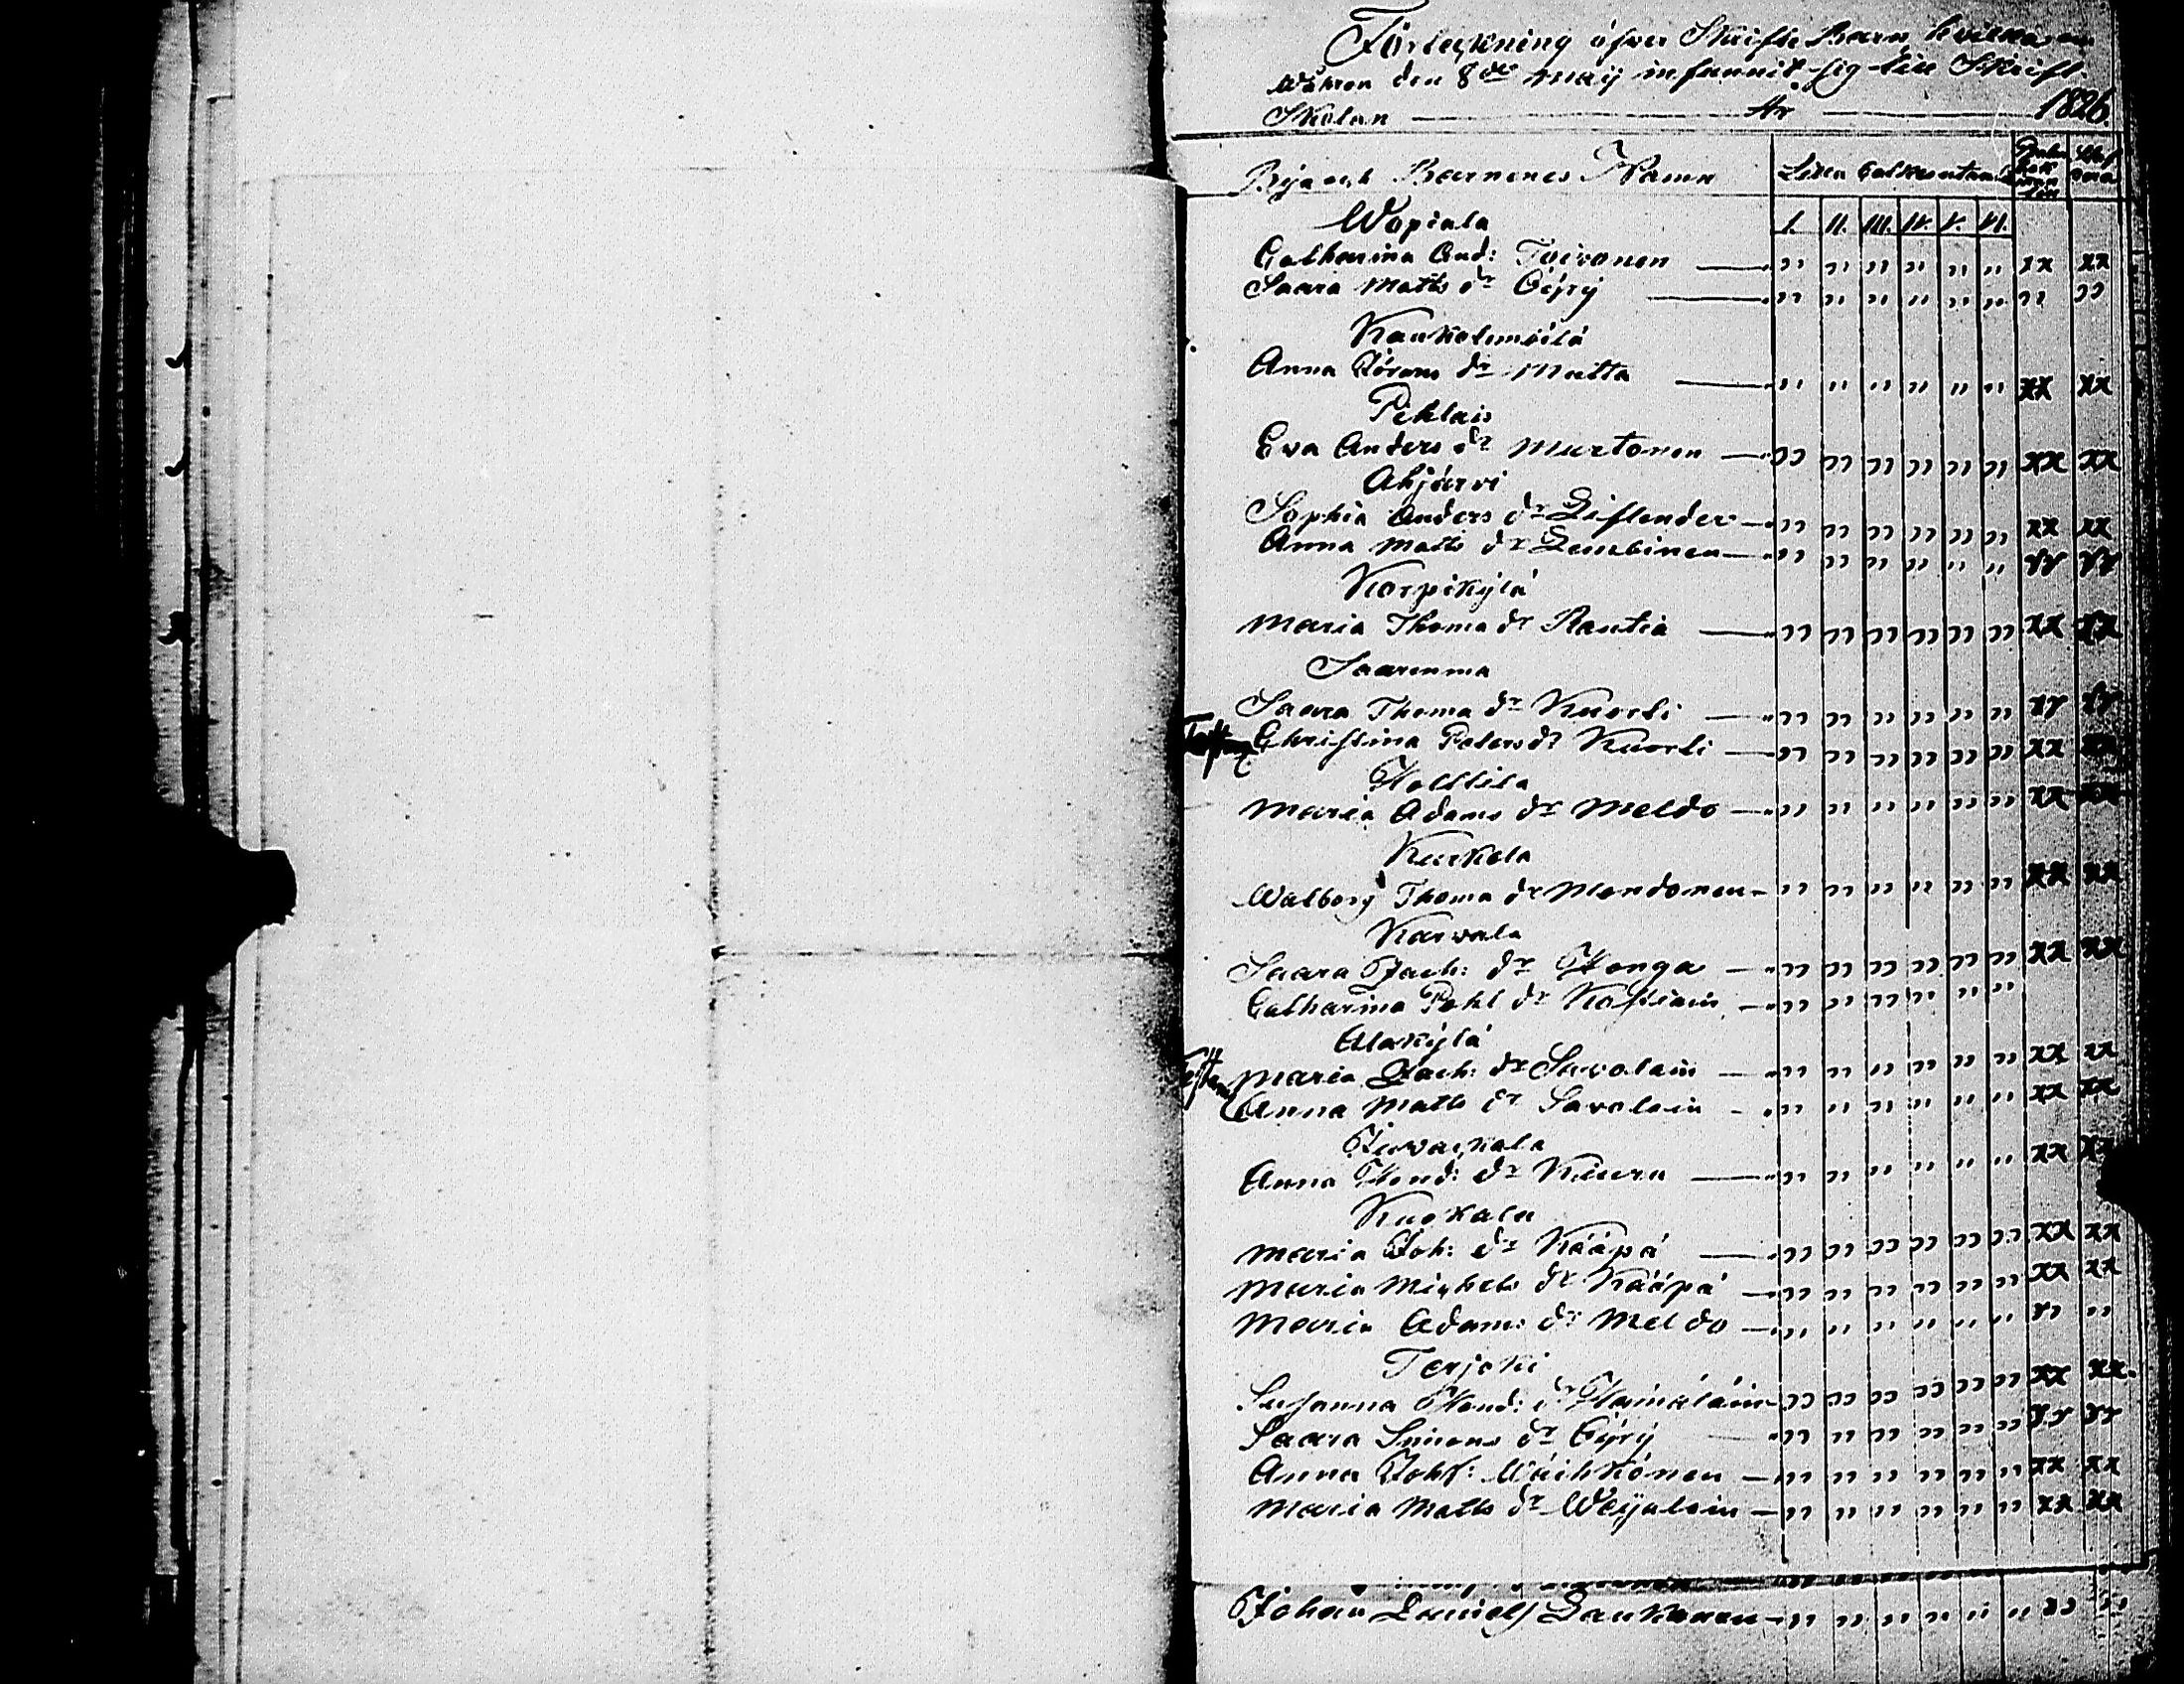 Förteckning öfver Skrifte Barn hvilka om
Wåhren den 8de Maij infunnit sig till Skrift-
Skolan År 1826.
By och Barnenes Namn Lilla Catkesen
I. II. III. IV. V. VI.
Wopiala
Catharina And: Toivonen " " " " " " xx xx
Saara Matts dr Öyry " " " " " " " "
Kaukolemäilä
Anna Görans dr Mutta " " " " " " xx xx
Pihlais
Eva Anders dr Murtonen " " " " " " xx xx
Ahjärvi
Sophia Anders dr Liflender " " " " " " xx xx
Anna Matts dr Lembinen " " " " " " xx xx
Korpikylä
Maria Thoma dr Rautia " " " " " " xx xx
Saarenma
Saara Thoma dr Kuorti " " " " " " xx xx
Christina Peters dr Kuorti " " " " " " xx xx
Holttila
Maria Adams dr Meldo " " " " " " xx xx
Kurkela
Walborg Thoma dr Mondonen " " " " " " xx xx
Karvala
Saara Zach: dr Honga " " " " " " xx xx
Catharina Pehl dr Kostiain " " " " " "
Alakylä
Maria Zach: dr Savolain " " " " " " xx xx
Anna Matts dr Savolain " " " " " " xx xx
Anna Hend: dr Kiuru " " " " " " xx xx
Kuokala
Maria Joh: dr Kääpä " " " " " " xx xx
Maria Michels dr Kääpä " " " " " " xx xx
Maria Adams dr Meldo " " " " " " " "
Terjoki
Susanna Hend: dr Hämäläin " " " " " " xx xx
Saara Simons dr Öyry " " " " " " xx xx
Anna Joh: Wäihkönen " " " " " " xx xx
Maria Matts dr Weijalain " " " " " " xx xx
Johan Daniels Laukanen " " " " " " " "